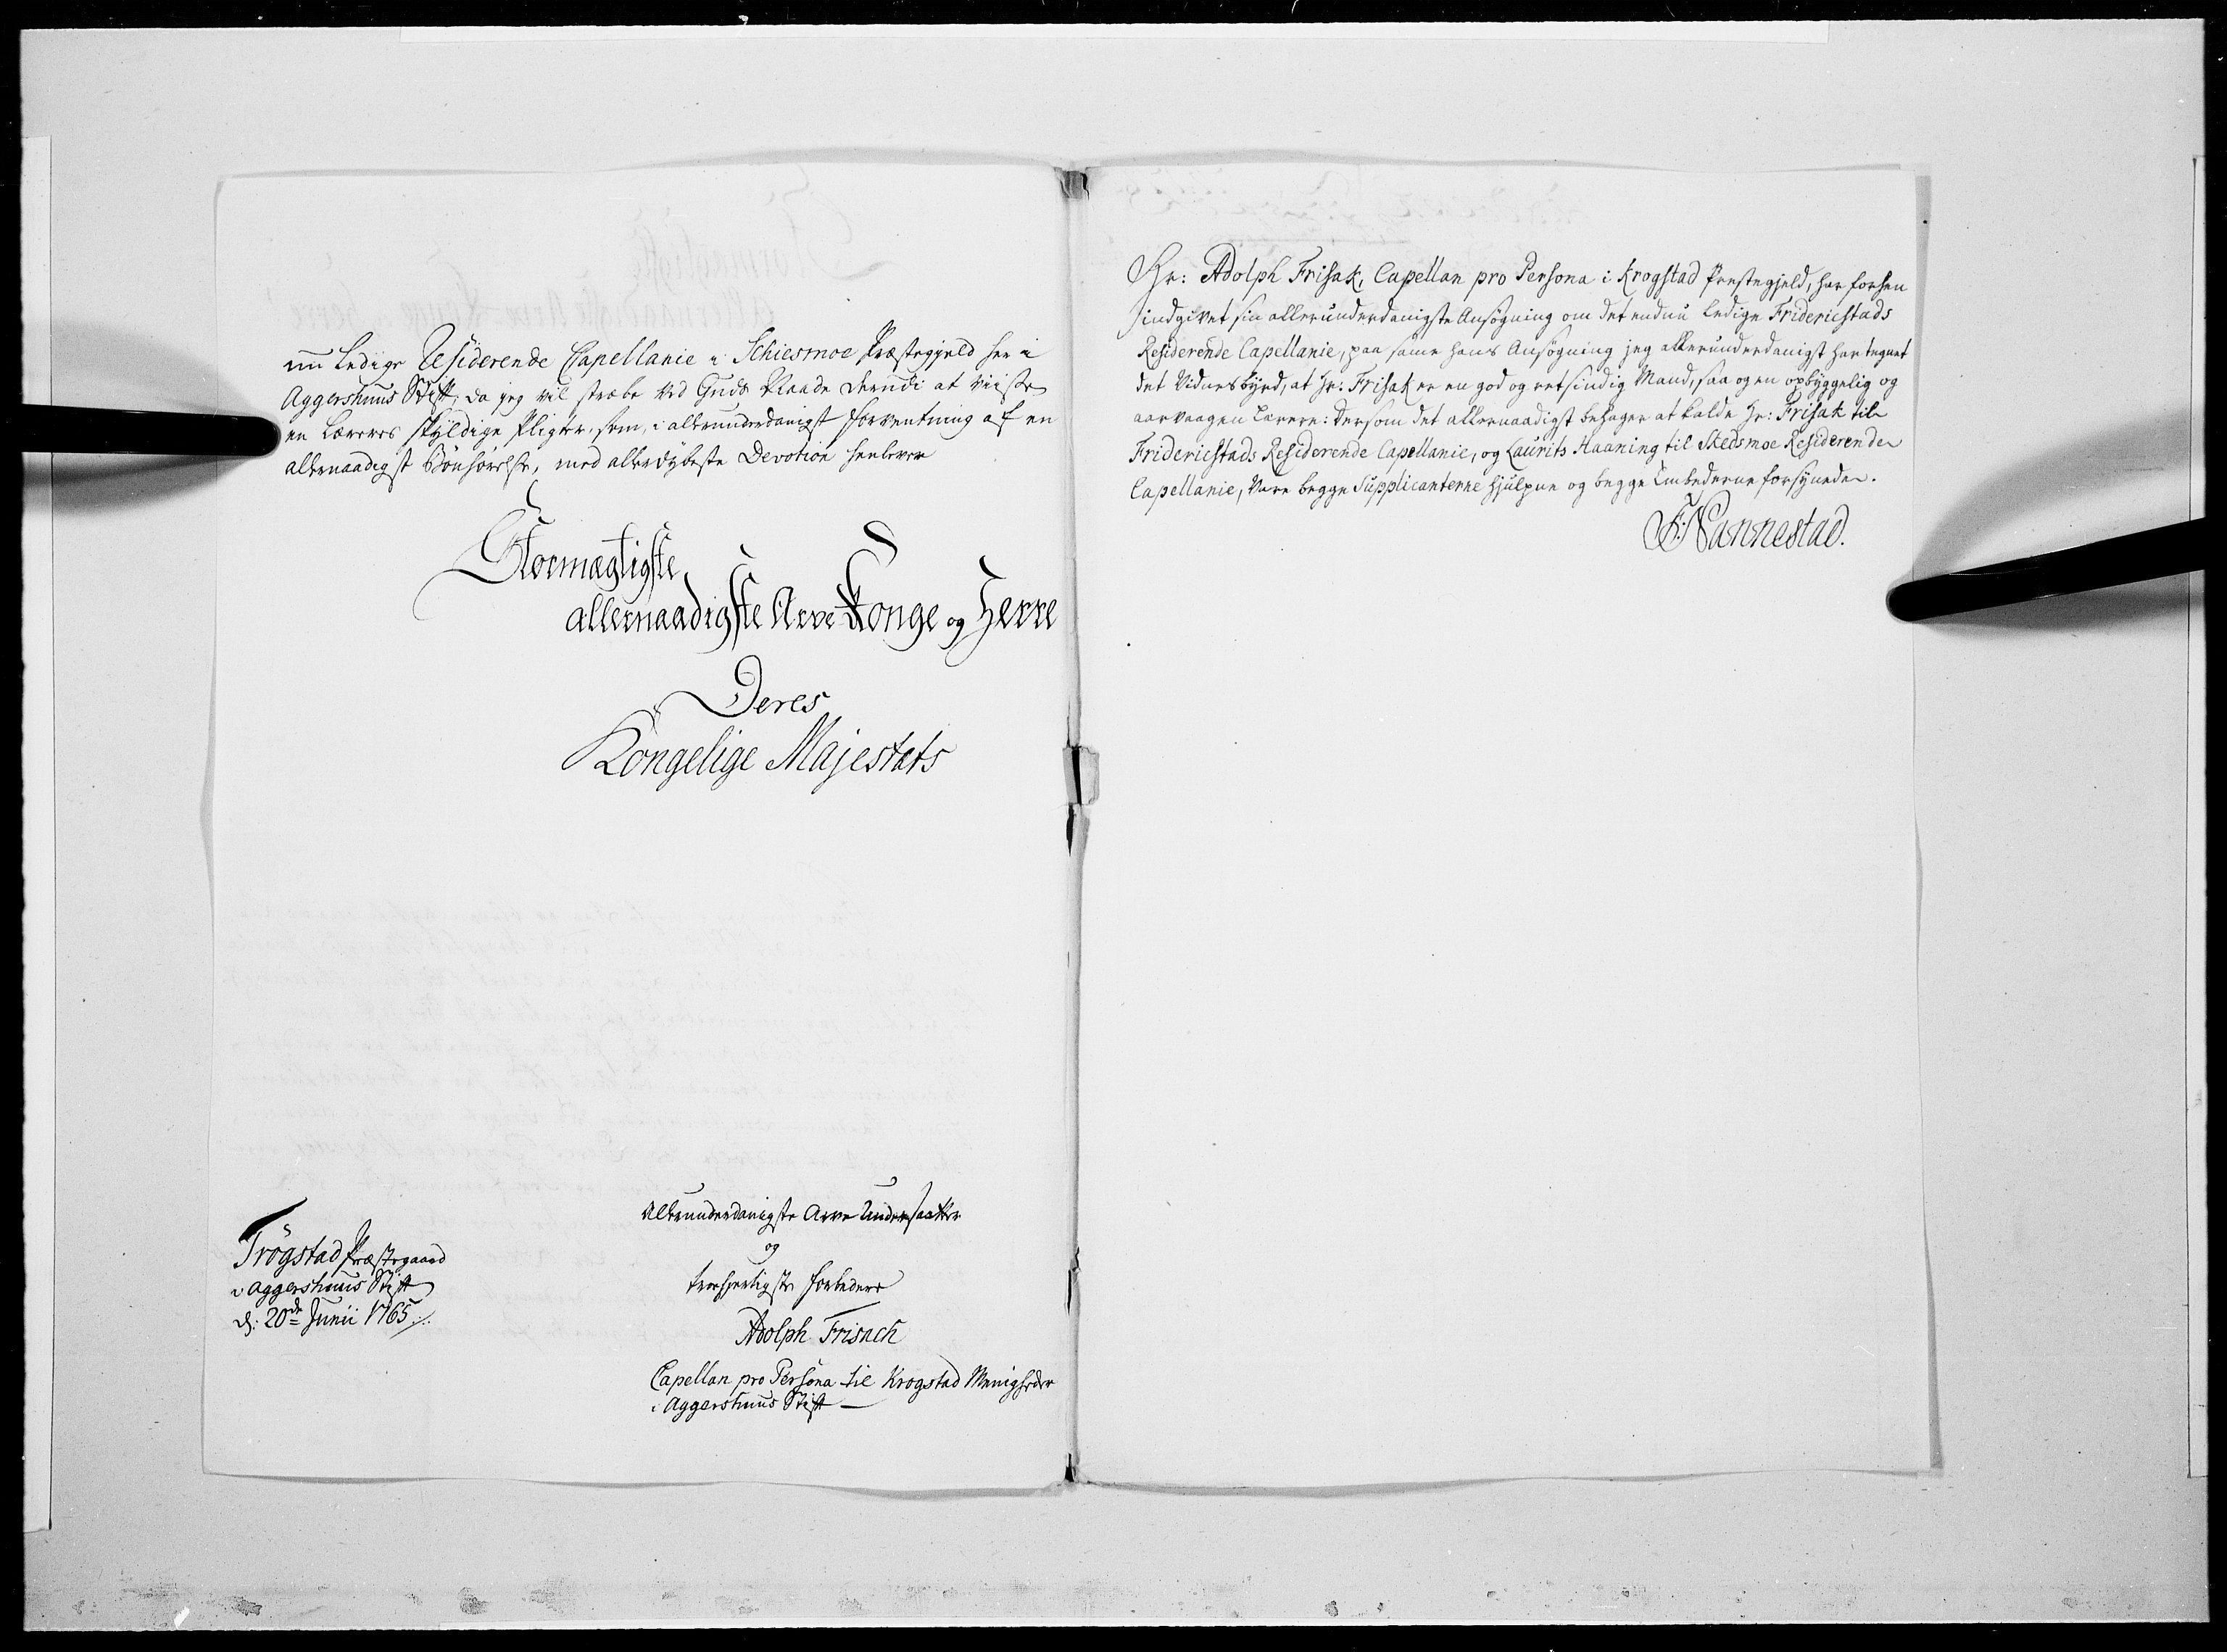 nu ledige Residerende Capellanie i Schiesmoe Præstegjeld her i
Aggershuus Stift, da jeg vil stræbe ved Guds Naade derudi at viise
en Læreres skyldige Pligter, som, i allerunderdanigst Forventning af en
allernaadigst Bönhørelse, med allerdybeste Devotion henlever
Stormægtigste
allernaadigste Arve Konge og Herre
Deres
Kongelige Majestæts
Allerunderdanigste Arve Undersaatter
og
troehiertigste Forbedere
Adolph Frisach
Capellan pro Persona til Krogstad Menigheder
i Aggershuus Stift
Trögstad Præstegaard
i Aggershuus Stift
d: 20de Junii 1765
Hr: Adolph Frisak, Capellan pro Persona i Krogstad Prestegjeld, har forhen
indgivet sin allerunderdanigste Ansøgning om det endnu ledige Fridericstads
Residerende Capellanie, paa samme hans Ansøgning jeg allerunderdanigst har tegnet
det Vidnesbyrd, at Hr: Frisak er en god og retsindig Mand, saa og en opbyggelig og
aarvaagen Lærere: Dersom det allernaadigst behager at kalde Hr: Frisak til
Fridericstads Residerende Capellanie, og Laurits Haaning til Skedsmoe Residerende
Capellanie, vare begge Supplicanterne hjulpne og begge Embederne forsynede.
F: Nannestad.